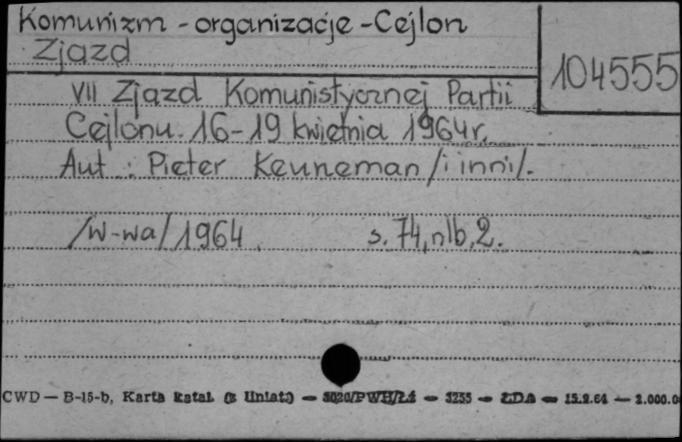 Komunizm - organizacje - Cejlon
Zjazd
104555
VII Zjazd Komunistycznej Partii
Cejlonu. 16-19 kwietnia 1964 r.
Aut : Pieter Keuneman /i inni/.
/W-wa/ 1964. s. 74, nlb, 2.
CWD — B-15-b, Karta katal. (z Uniat.) — 3020/PWH/Łi — 3255 — ŁDA — 15.2.61 — 2.000.0